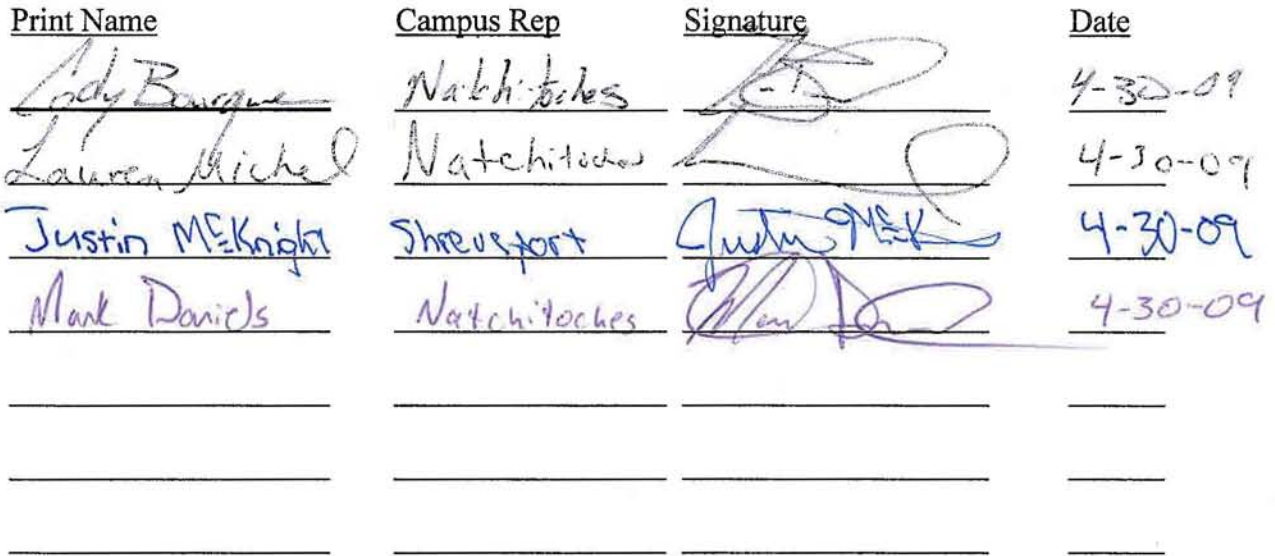 Print Name Campus Rep Signature Date
Cody Bourque Natchitoches 4-30-09
Lauren Michel Natchitoches 4-30-09
Justin McKnight Shreveport Justin McK 4-30-09
Mark Daniels Natchitoches 4-30-09